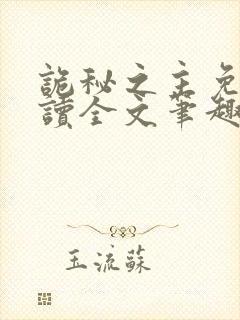 詭秘之主免
讀全文筆趣
玉流蘇